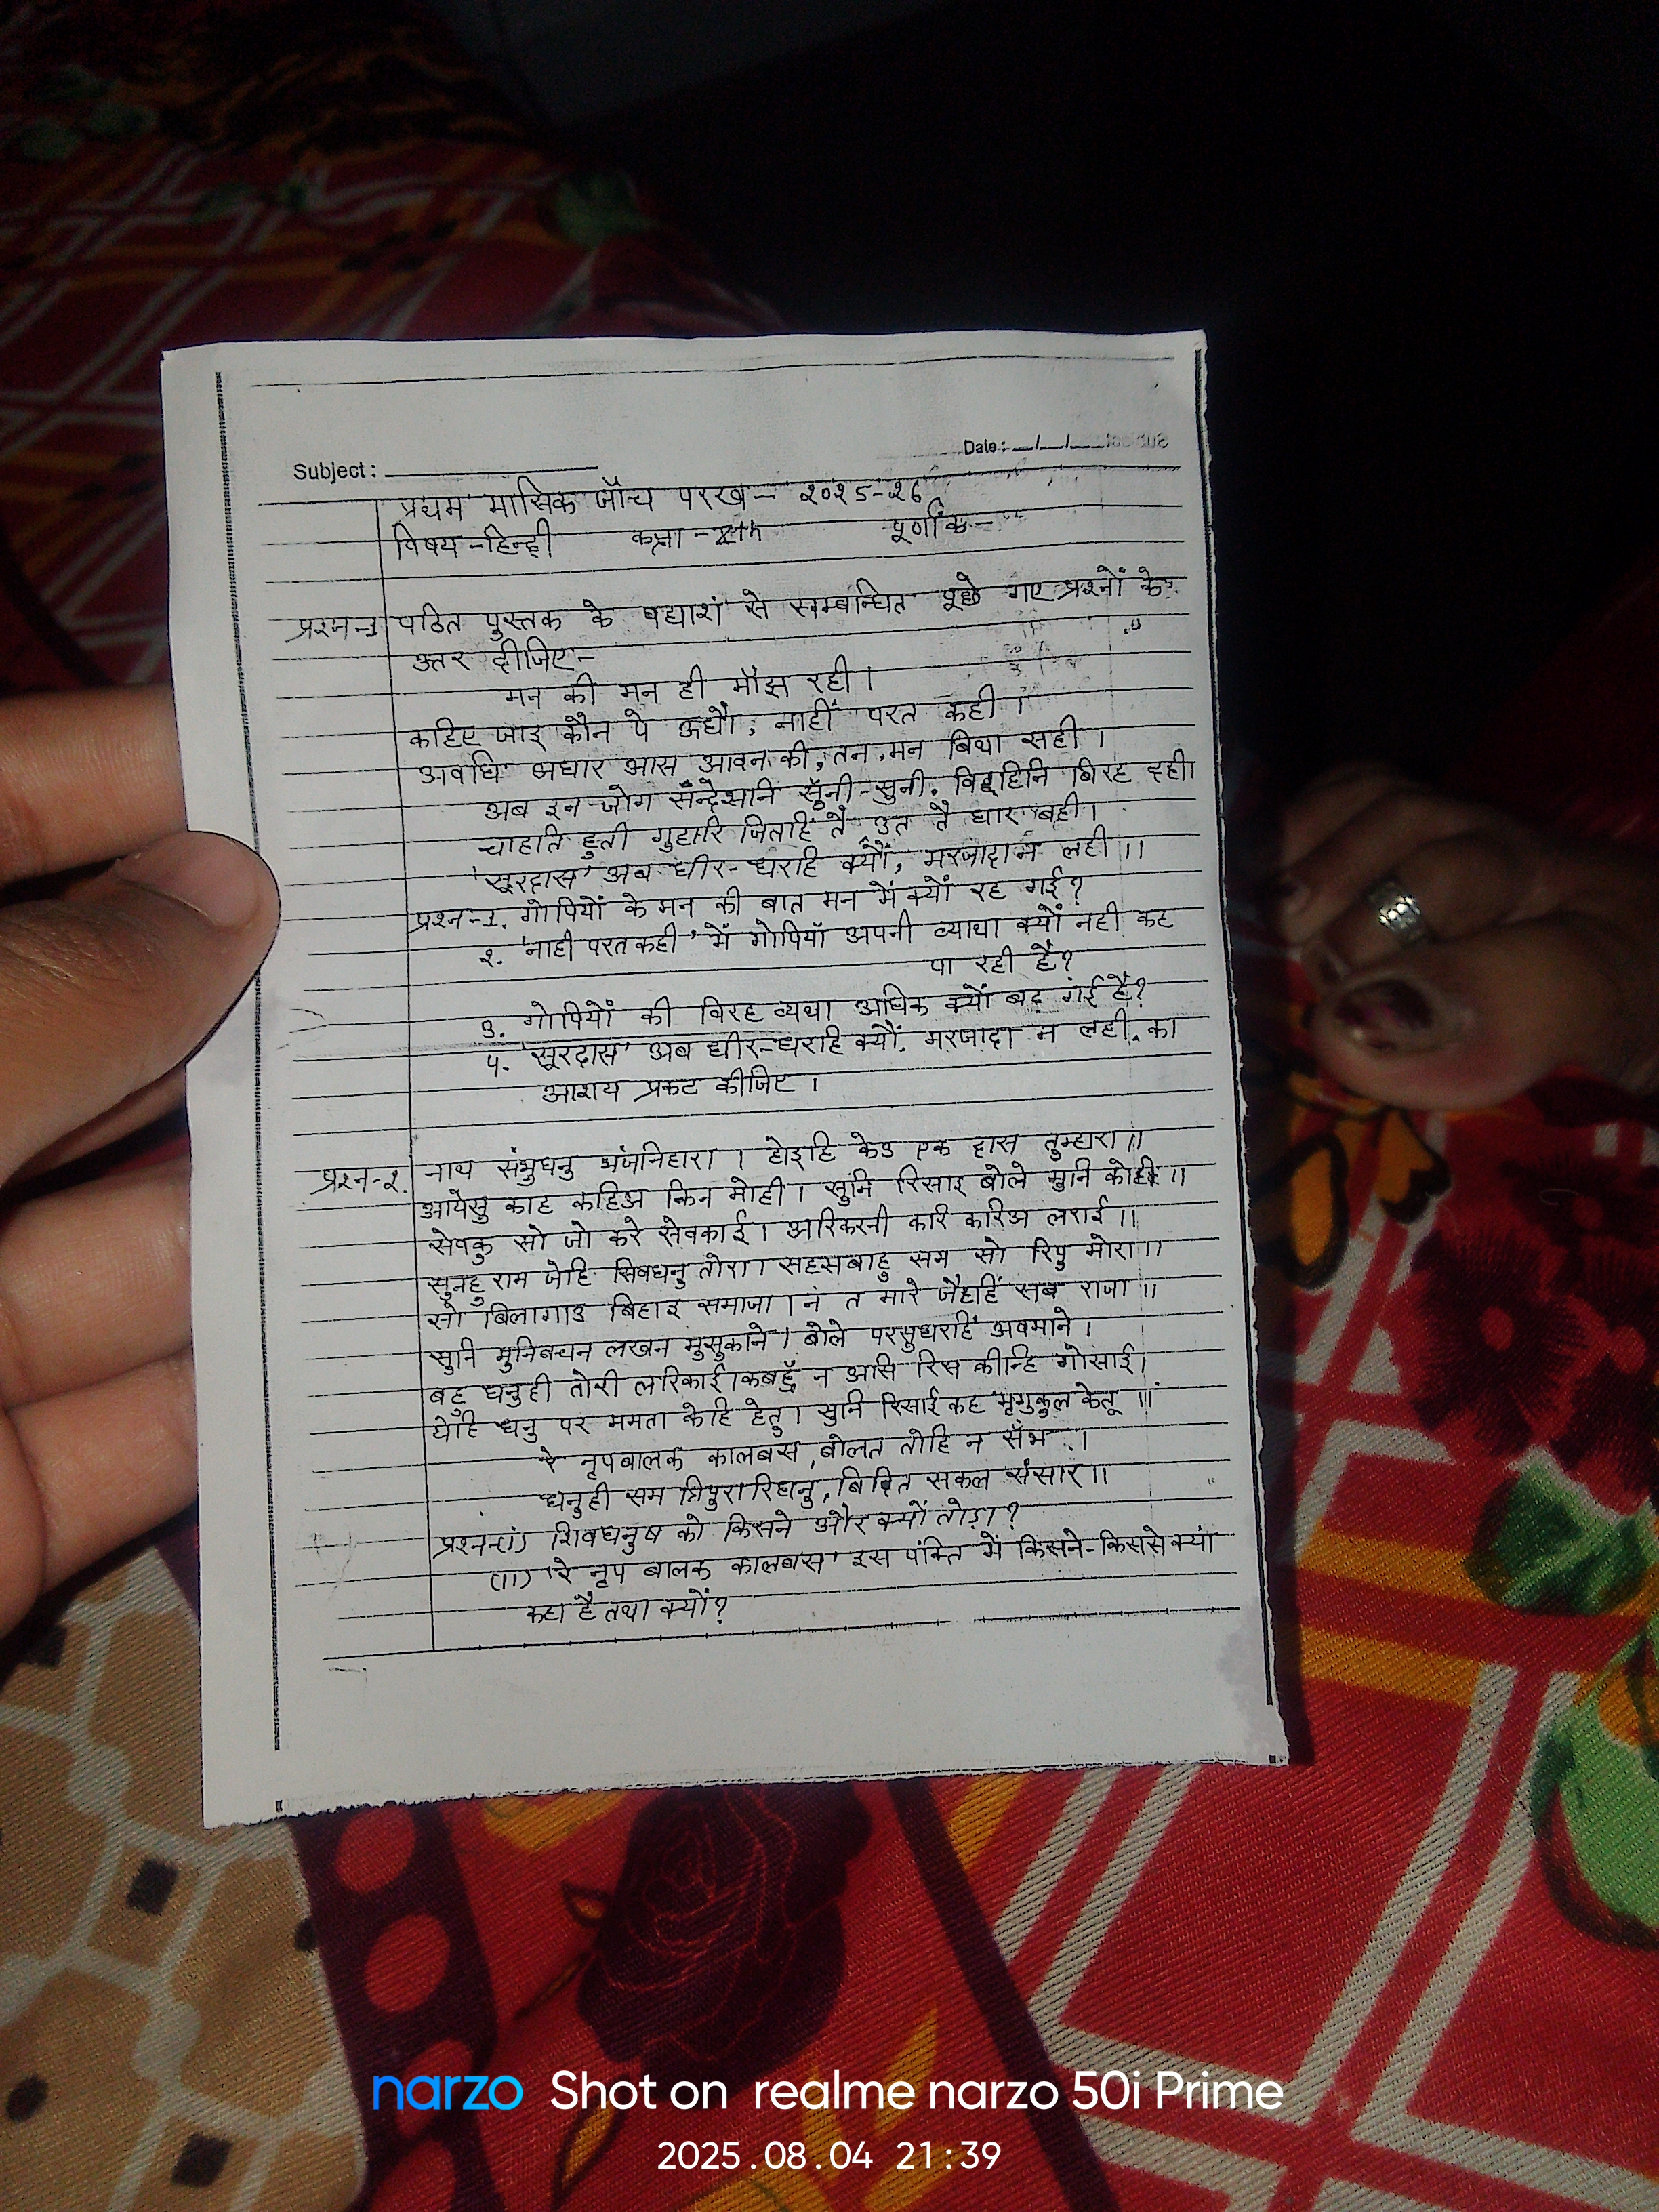 Date : __/__/__
Subject :
प्रथम मासिक जाँच परख - २०२५-२६
विषय - हिन्दी कक्षा - Xth पूर्णांक -
प्रश्न-1 पठित पुस्तक के पद्याशं से सम्बन्धित पूछे गए प्रश्नों के
उत्तर दीजिए-
मन की मन ही माँझ रही।
कहिए जाइ कौन पे ऊधौ, नाहीं परत कही।
अवधि अधार आस आवन की, तन, मन बिथा सही।
अब इन जोग सँन्देसनि सुँनी-सुनी, विरहिनि बिरह दही।
चाहति हुती गुहारि जितहिं तै, उत तै धार बही।
'सूरदास' अब धीर-धरहि क्यौं, मरजादा न लही।।
प्रश्न-1. गोपियों के मन की बात मन में क्यों रह गई?
२. 'नाही परत कही' में गोपियाँ अपनी व्याथा क्यों नही कह
पा रही है?
३. गोपियों की विरह व्यथा अधिक क्यों बढ़ गई है?
५. 'सूरदास' अब धीर-धरहि क्यौं, मरजादा न लही, का
आशय प्रकट कीजिए।
प्रश्न-२. नाथ संभुधनु भंजनिहारा। होइहि केउ एक दास तुम्हारा।।
आयेसु काह कहिअ किन मोही। सुनि रिसाइ बोले मुनि कोही।।
सेवकु सो जो करे सेवकाई। अरिकरनी करि करिअ लराई।।
सुनहु राम जेहि सिवधनु तोरा। सहसबाहु सम सो रिपु मोरा।।
सो बिलागाउ बिहाइ समाजा। न त मारे जैहहिं सब राजा।।
सुनि मुनिबचन लखन मुसुकाने। बोले परसुधरहिं अवमाने।
बहु धनुही तोरी लरिकाई। कबहुँ न असि रिस कीन्हि गोसाई।
येहि धनु पर ममता केहि हेतु। सुनि रिसाई कह भृगुकुल केतू।।
रे नृपबालक कालबस, बोलत तोहि न सँभ।
धनुही सम त्रिपुरारिधनु, बिदित सकल संसार।।
प्रश्न-(i) शिवधनुष को किसने और क्यों तोड़ा?
(ii) 'रे नृप बालक कालबस' इस पंक्ति में किसने-किससे क्या
कहा है तथा क्यों?
narzo Shot on realme narzo 50i Prime
2025.08.04 21:39